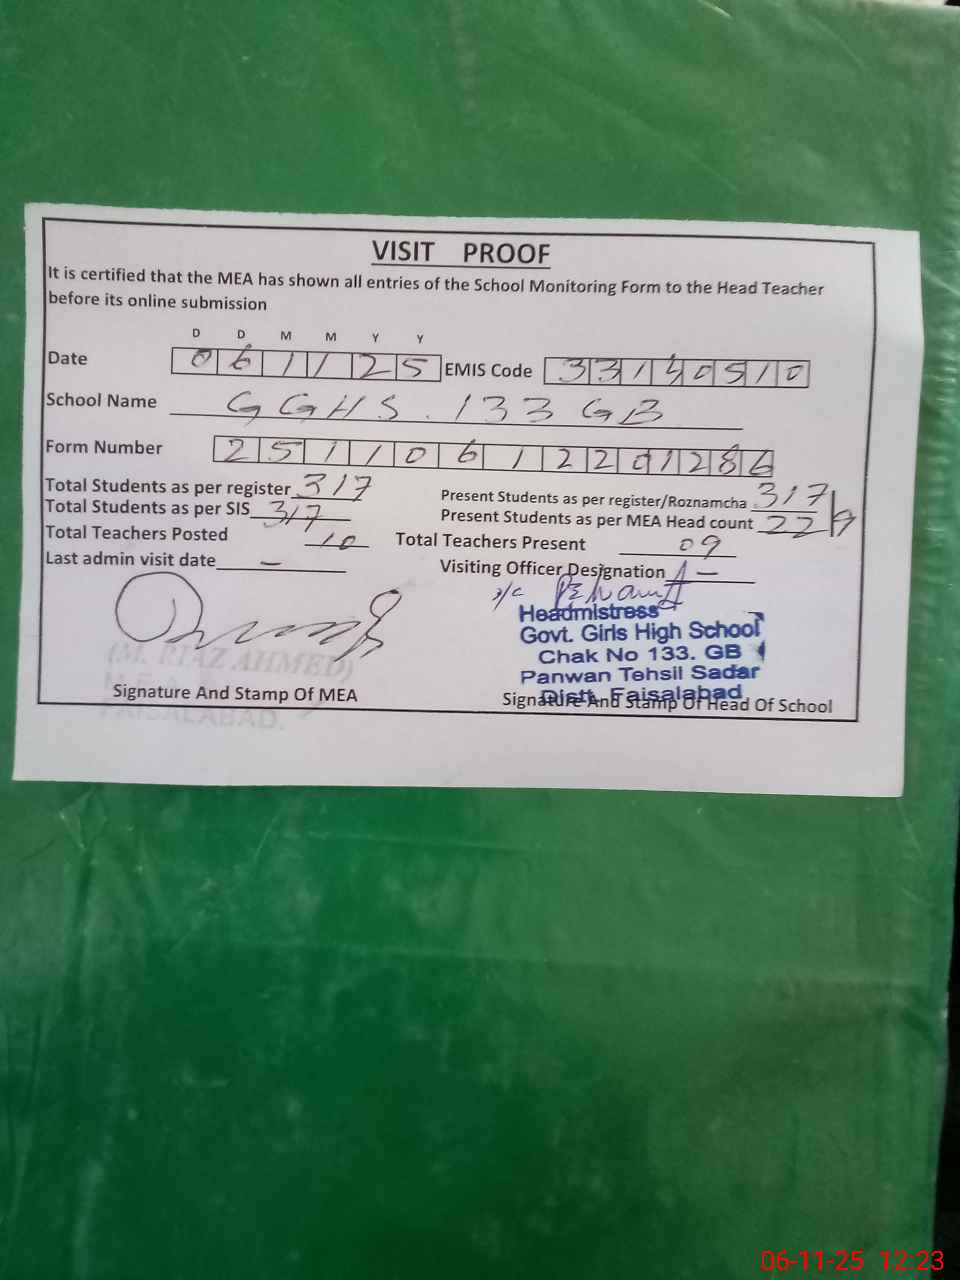 VISIT PROOF
It is certified that the MEA has shown all entries of the School Monitoring Form to the Head Teacher
before its online submission
D D M M Y Y
Date 0 6 1 1 2 5 EMIS Code 3 3 1 4 0 5 1 0
School Name GGHS. 133 GB
Form Number 2 5 1 1 0 6 1 2 2 0 1 2 8 6
Total Students as per register 317 Present Students as per register/Roznamcha 317
Total Students as per SIS 317 Present Students as per MEA Head count
Total Teachers Posted 10 Total Teachers Present 09
Last admin visit date - Visiting Officer Designation -
Headmistress
Govt. Girls High School
Chak No 133. GB
Panwan Tehsil Sadar
Distt. Faisalabad
(M. RIAZ AHMED)
FAISALABAD.
Signature And Stamp Of MEA Signature And Stamp Of Head Of School
06-11-25 12:23